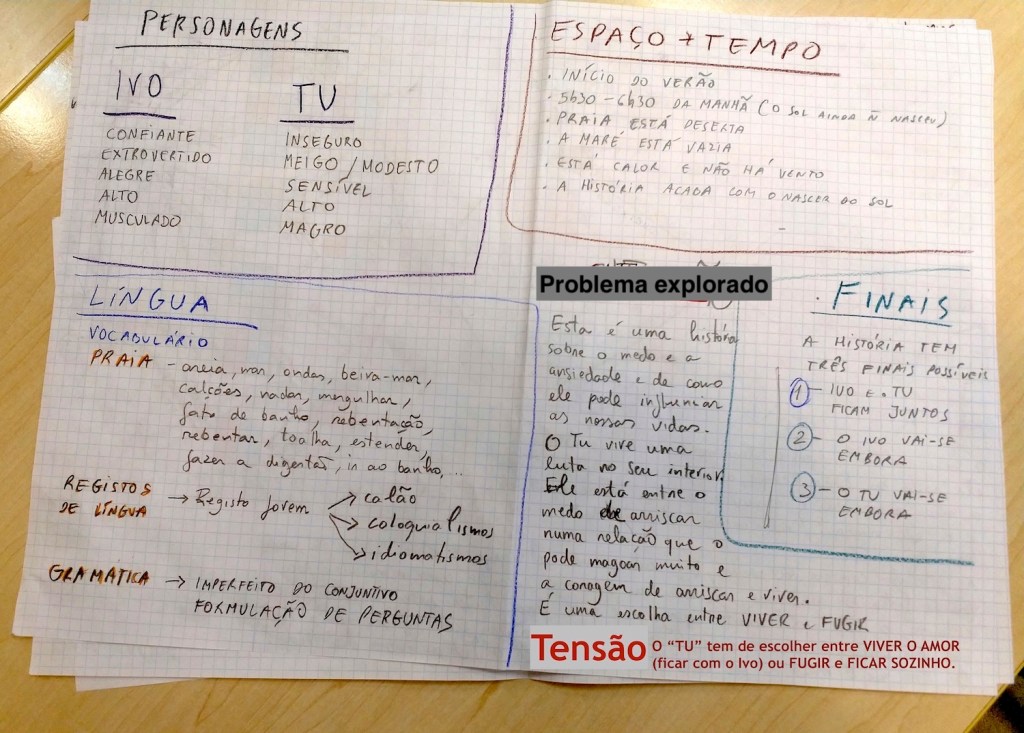 PERSONAGENS
IVO
CONFIANTE
EXTROVERTIDO
ALEGRE
ALTO
MUSCULADO
TU
INSEGURO
MEIGO / MODESTO
SENSÍVEL
ALTO
MAGRO
ESPAÇO + TEMPO
. INÍCIO DO VERÃO
. 5h30 - 6h30 DA MANHÃ (O SOL AINDA Ñ NASCEU)
. PRAIA ESTÁ DESERTA
. A MARÉ ESTÁ VAZIA
. ESTÁ CALOR E NÃO HÁ VENTO
. A HISTÓRIA ACABA COM O NASCER DO SOL
LÍNGUA
VOCABULÁRIO
PRAIA - areia, mar, ondas, beira-mar,
calções, nadar, mergulhar,
fato de banho, rebentação,
rebentar, toalha, estender,
fazer a digestão, ir ao banho,...
REGISTOS DE LÍNGUA → Registo jovem → calão
→ coloquialismos
→ idiomatismos
GRAMÁTICA → IMPERFEITO DO CONJUNTIVO
FORMULAÇÃO DE PERGUNTAS
Problema explorado
Esta é uma história
sobre o medo e a
ansiedade e de como
ele pode influenciar
as nossas vidas.
O Tu vive uma
luta no seu interior.
Ele está entre o
medo de arriscar
numa relação que o
pode magoar muito e
a coragem de arriscar e viver.
É uma escolha entre VIVER e FUGIR
. FINAIS
A HISTÓRIA TEM
TRÊS FINAIS POSSÍVEIS
1 - IVO E . TU
FICAM JUNTOS
2 - O IVO VAI-SE
EMBORA
3 - O TU VAI-SE
EMBORA
Tensão O “TU” tem de escolher entre VIVER O AMOR
(ficar com o Ivo) ou FUGIR e FICAR SOZINHO.